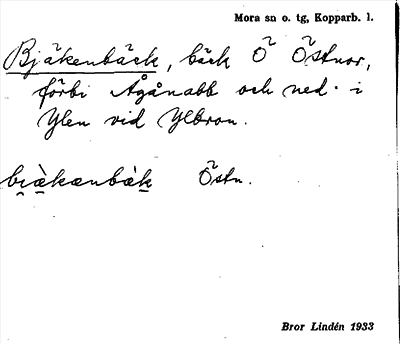 Mora sn o. tg, Kopparb. l.
Bjäkenbäck, bäck Ö Östnor,
förbi Ågånabb och ned i
Ylen vid Ylbron.
bi̯àkænbàk Östn.
Bror Lindén 1933